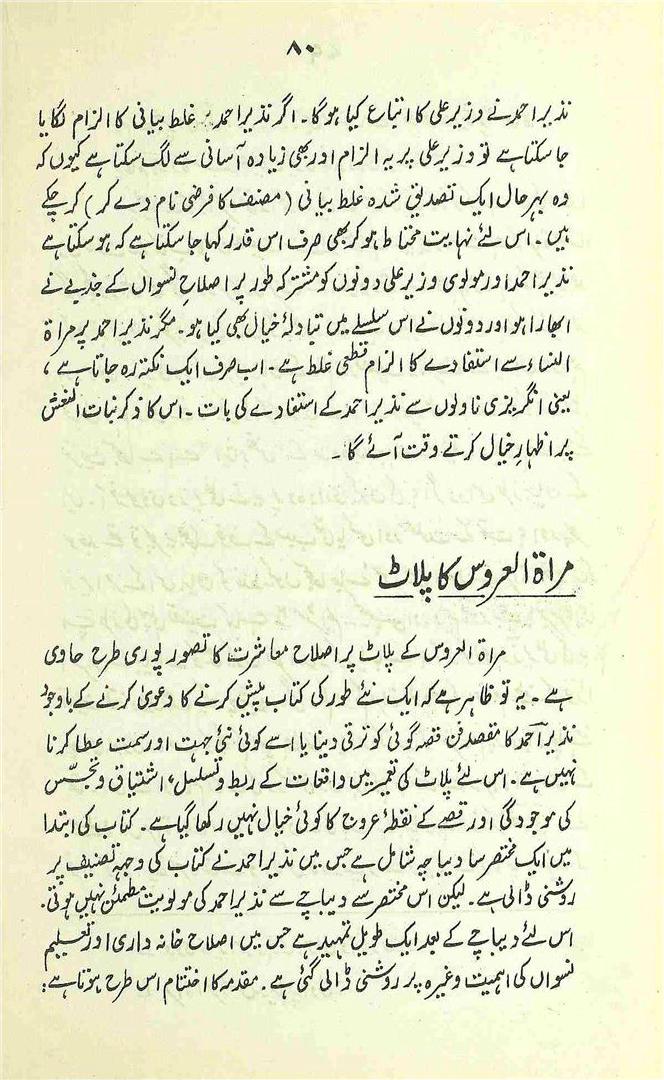 ۸۰
نذیر احمد نے وزیر علی کا اتباع کیا ہوگا۔ اگر نذیر احمد پر غلط بیانی کا الزام لگایا
جا سکتا ہے تو وزیر علی پر یہ الزام اور بھی زیادہ آسانی سے لگ سکتا ہے کیوں کہ
وہ بہر حال ایک تصدیق شدہ غلط بیانی (مصنف کا فرضی نام دے کر) کر چکے
ہیں۔ اس لئے نہایت محتاط ہو کر بھی صرف اس قدر کہا جا سکتا ہے کہ ہو سکتا ہے
نذیر احمد اور مولوی وزیر علی دونوں کو مشترکہ طور پر اصلاحِ نسواں کے جذبے نے
ابھارا ہو اور دونوں نے اس سلسلے میں تبادلۂ خیال بھی کیا ہو۔ مگر نذیر احمد پر مراۃ
النساء سے استفادے کا الزام قطعی غلط ہے۔ اب صرف ایک نکتہ رہ جاتا ہے،
یعنی انگریزی ناولوں سے نذیر احمد کے استفادے کی بات۔ اس کا ذکر بنات النعش
پر اظہارِ خیال کرتے وقت آئے گا۔
مراۃ العروس کا پلاٹ
مراۃ العروس کے پلاٹ پر اصلاح معاشرت کا تصور پوری طرح حاوی
ہے۔ یہ تو ظاہر ہے کہ ایک نئے طور کی کتاب پیش کرنے کا دعویٰ کرنے کے باوجود
نذیر احمد کا مقصد فن قصہ گوئی کو ترقی دینا یا اسے کوئی نئی جہت اور سمت عطا کرنا
نہیں ہے۔ اس لئے پلاٹ کی تعمیر میں واقعات کے ربط و تسلسل، اشتیاق و تجسّس
کی موجودگی اور قصے کے نقطۂ عروج کا کوئی خیال نہیں رکھا گیا ہے۔ کتاب کی ابتدا
میں ایک مختصر سا دیباچہ شامل ہے جس میں نذیر احمد نے کتاب کی وجہِ تصنیف پر
روشنی ڈالی ہے۔ لیکن اس مختصر سے دیباچے سے نذیر احمد کی مولویت مطمئن نہیں ہوتی۔
اس لئے دیباچے کے بعد ایک طویل تمہید ہے جس میں اصلاح خانہ داری اور تعلیم
نسواں کی اہمیت وغیرہ پر روشنی ڈالی گئی ہے۔ مقدمہ کا اختتام اس طرح ہوتا ہے: